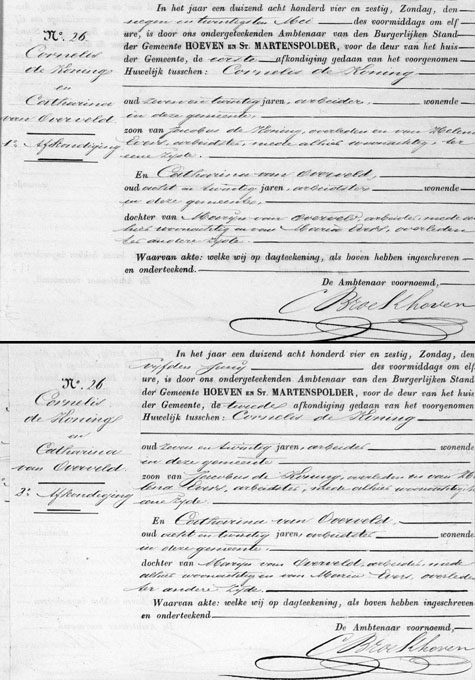 Nº. 26.
Cornelis
de Koning
en
Catharina
van Overveld.
1e Afkondiging
In het jaar een duizend acht honderd vier en zestig, Zondag, den
negen en twintigsten Mei des voormiddags om elf
ure, is door ons ondergeteekenden Ambtenaar van den Burgerlijken Stand
der Gemeente HOEVEN EN ST. MARTENSPOLDER, voor de deur van het huis
der Gemeente, de eerste afkondiging gedaan van het voorgenomen
Huwelijk tusschen: Cornelis de Koning
oud zeven en twintig jaren, arbeider, wonende
in deze gemeente,
zoon van Jacobus de Koning, overleden en van Helena
Evers, arbeidster, mede alhier woonachtig, ter
eene zijde.
En Catharina van Overveld,
oud acht en twintig jaren, arbeidster wonende
in deze gemeente,
dochter van Maryn van Overveld, arbeider, mede al-
hier woonachtig en van Maria Evers, overleden
ter andere zijde.
Waarvan akte: welke wij op dagteekening, als boven hebben ingeschreven
en onderteekend.
De Ambtenaar voornoemd,
C Broekhoven
Nº. 26
Cornelis
de Koning
en
Catharina
van Overveld.
2e Afkondiging
In het jaar een duizend acht honderd vier en zestig, Zondag, den
vijfden Junij des voormiddags om elf
ure, is door ons ondergeteekenden Ambtenaar van den Burgerlijken Stand
der Gemeente HOEVEN EN ST. MARTENSPOLDER, voor de deur van het huis
der Gemeente, de tweede afkondiging gedaan van het voorgenomen
Huwelijk tusschen: Cornelis de Koning
oud zeven en twintig jaren, arbeider wonende
in deze gemeente
zoon van Jacobus de Koning, overleden en van He-
lena Evers, arbeidster, mede alhier woonachtig, ter
eene zijde.
En Catharina van Overveld,
oud acht en twintig jaren, arbeidster wonende
in deze gemeente,
dochter van Maryn van Overveld, arbeider, mede
alhier woonachtig en van Maria Evers, overleden
ter andere zijde.
Waarvan akte: welke wij op dagteekening, als boven hebben ingeschreven
en onderteekend.
De Ambtenaar voornoemd,
C Broekhoven